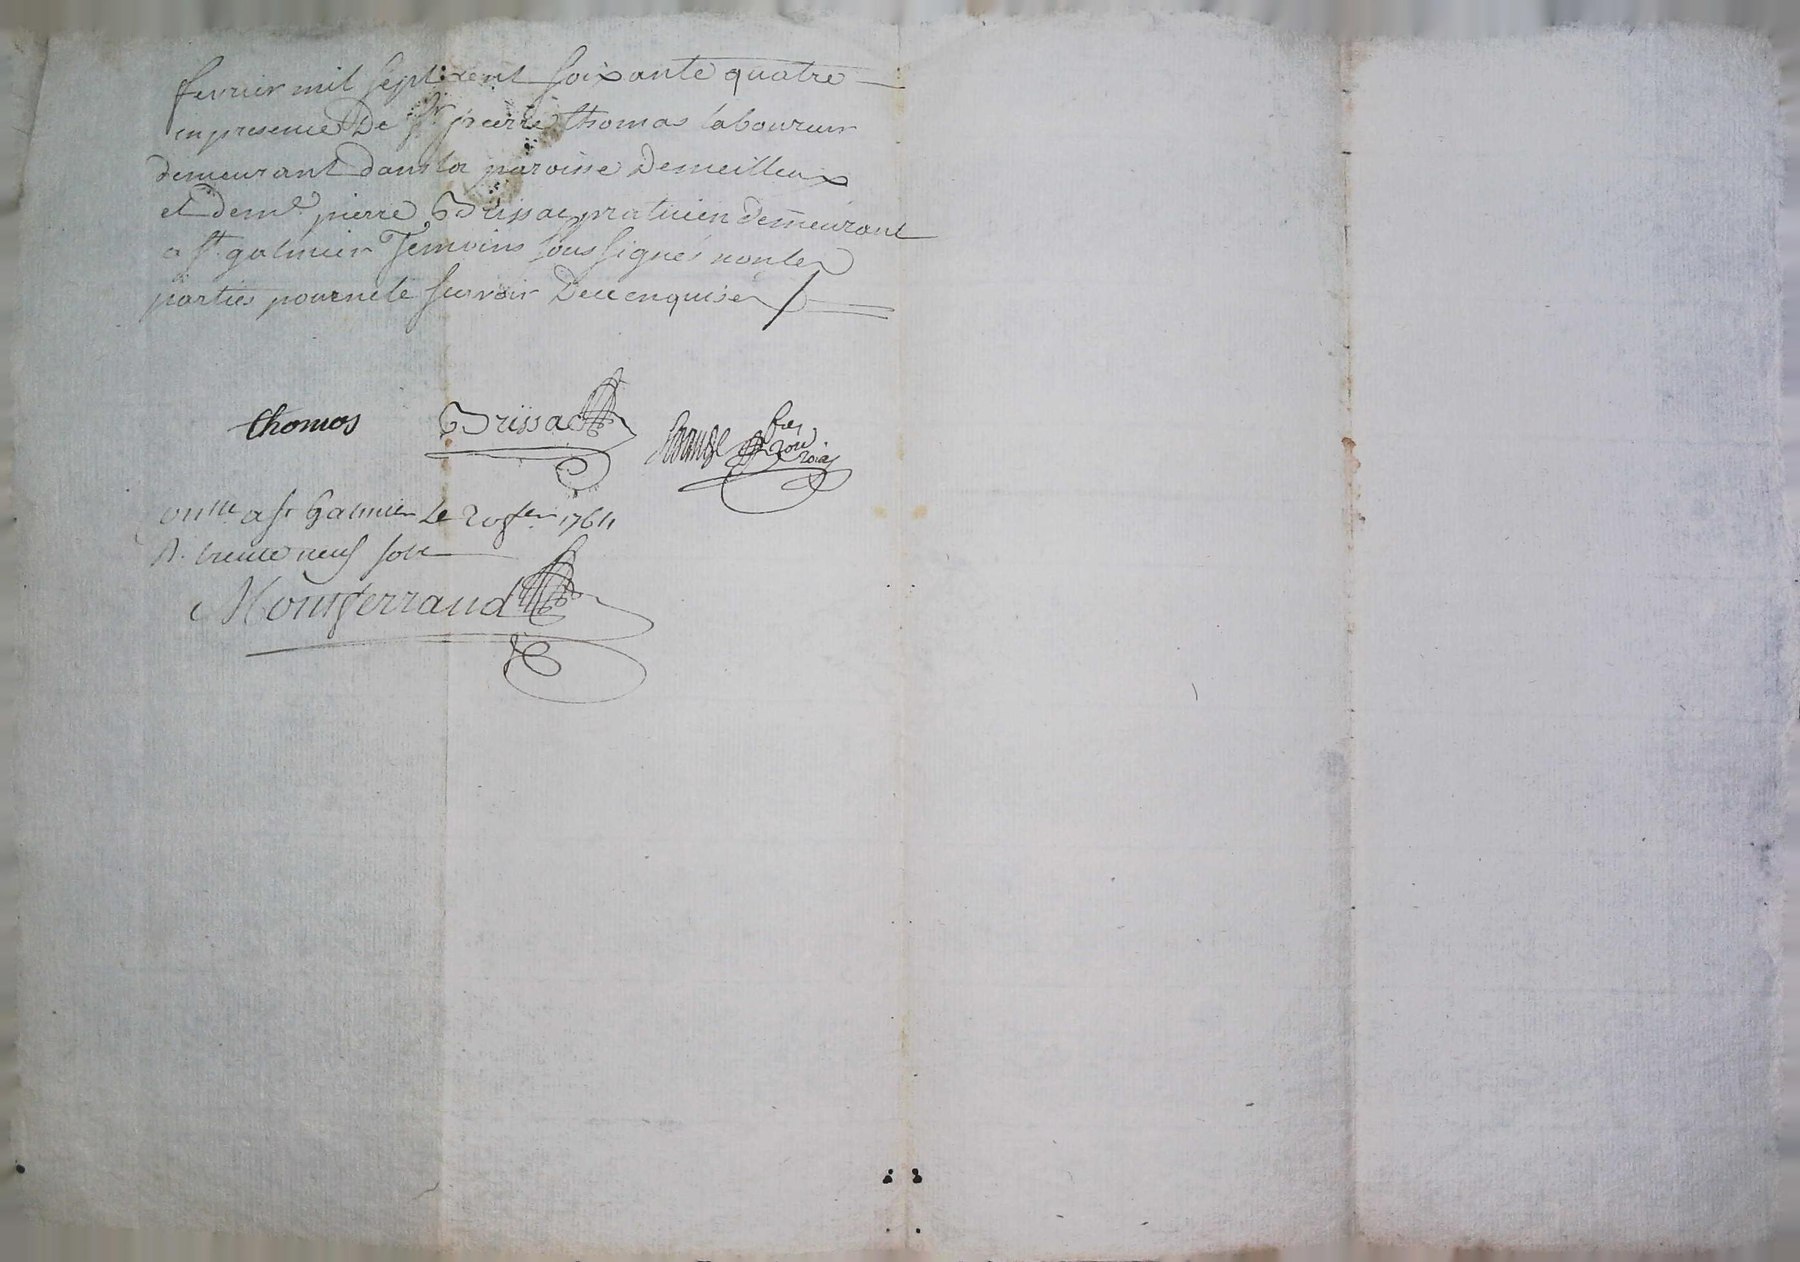 fevrier mil sept cent soixante quatre
en presence De Sr. pierre thomas laboureur
demeurant dans la paroisse De meilleux
et de mr. pierre Brissac praticien demeurant
a St. galmier Temoins sous signés non les
parties pour ne le scavoir De ce enquises /
thomas Brissac
onlle a St Galmier Le 20 fer. 1764
R. trente neuf sols
Montferrand